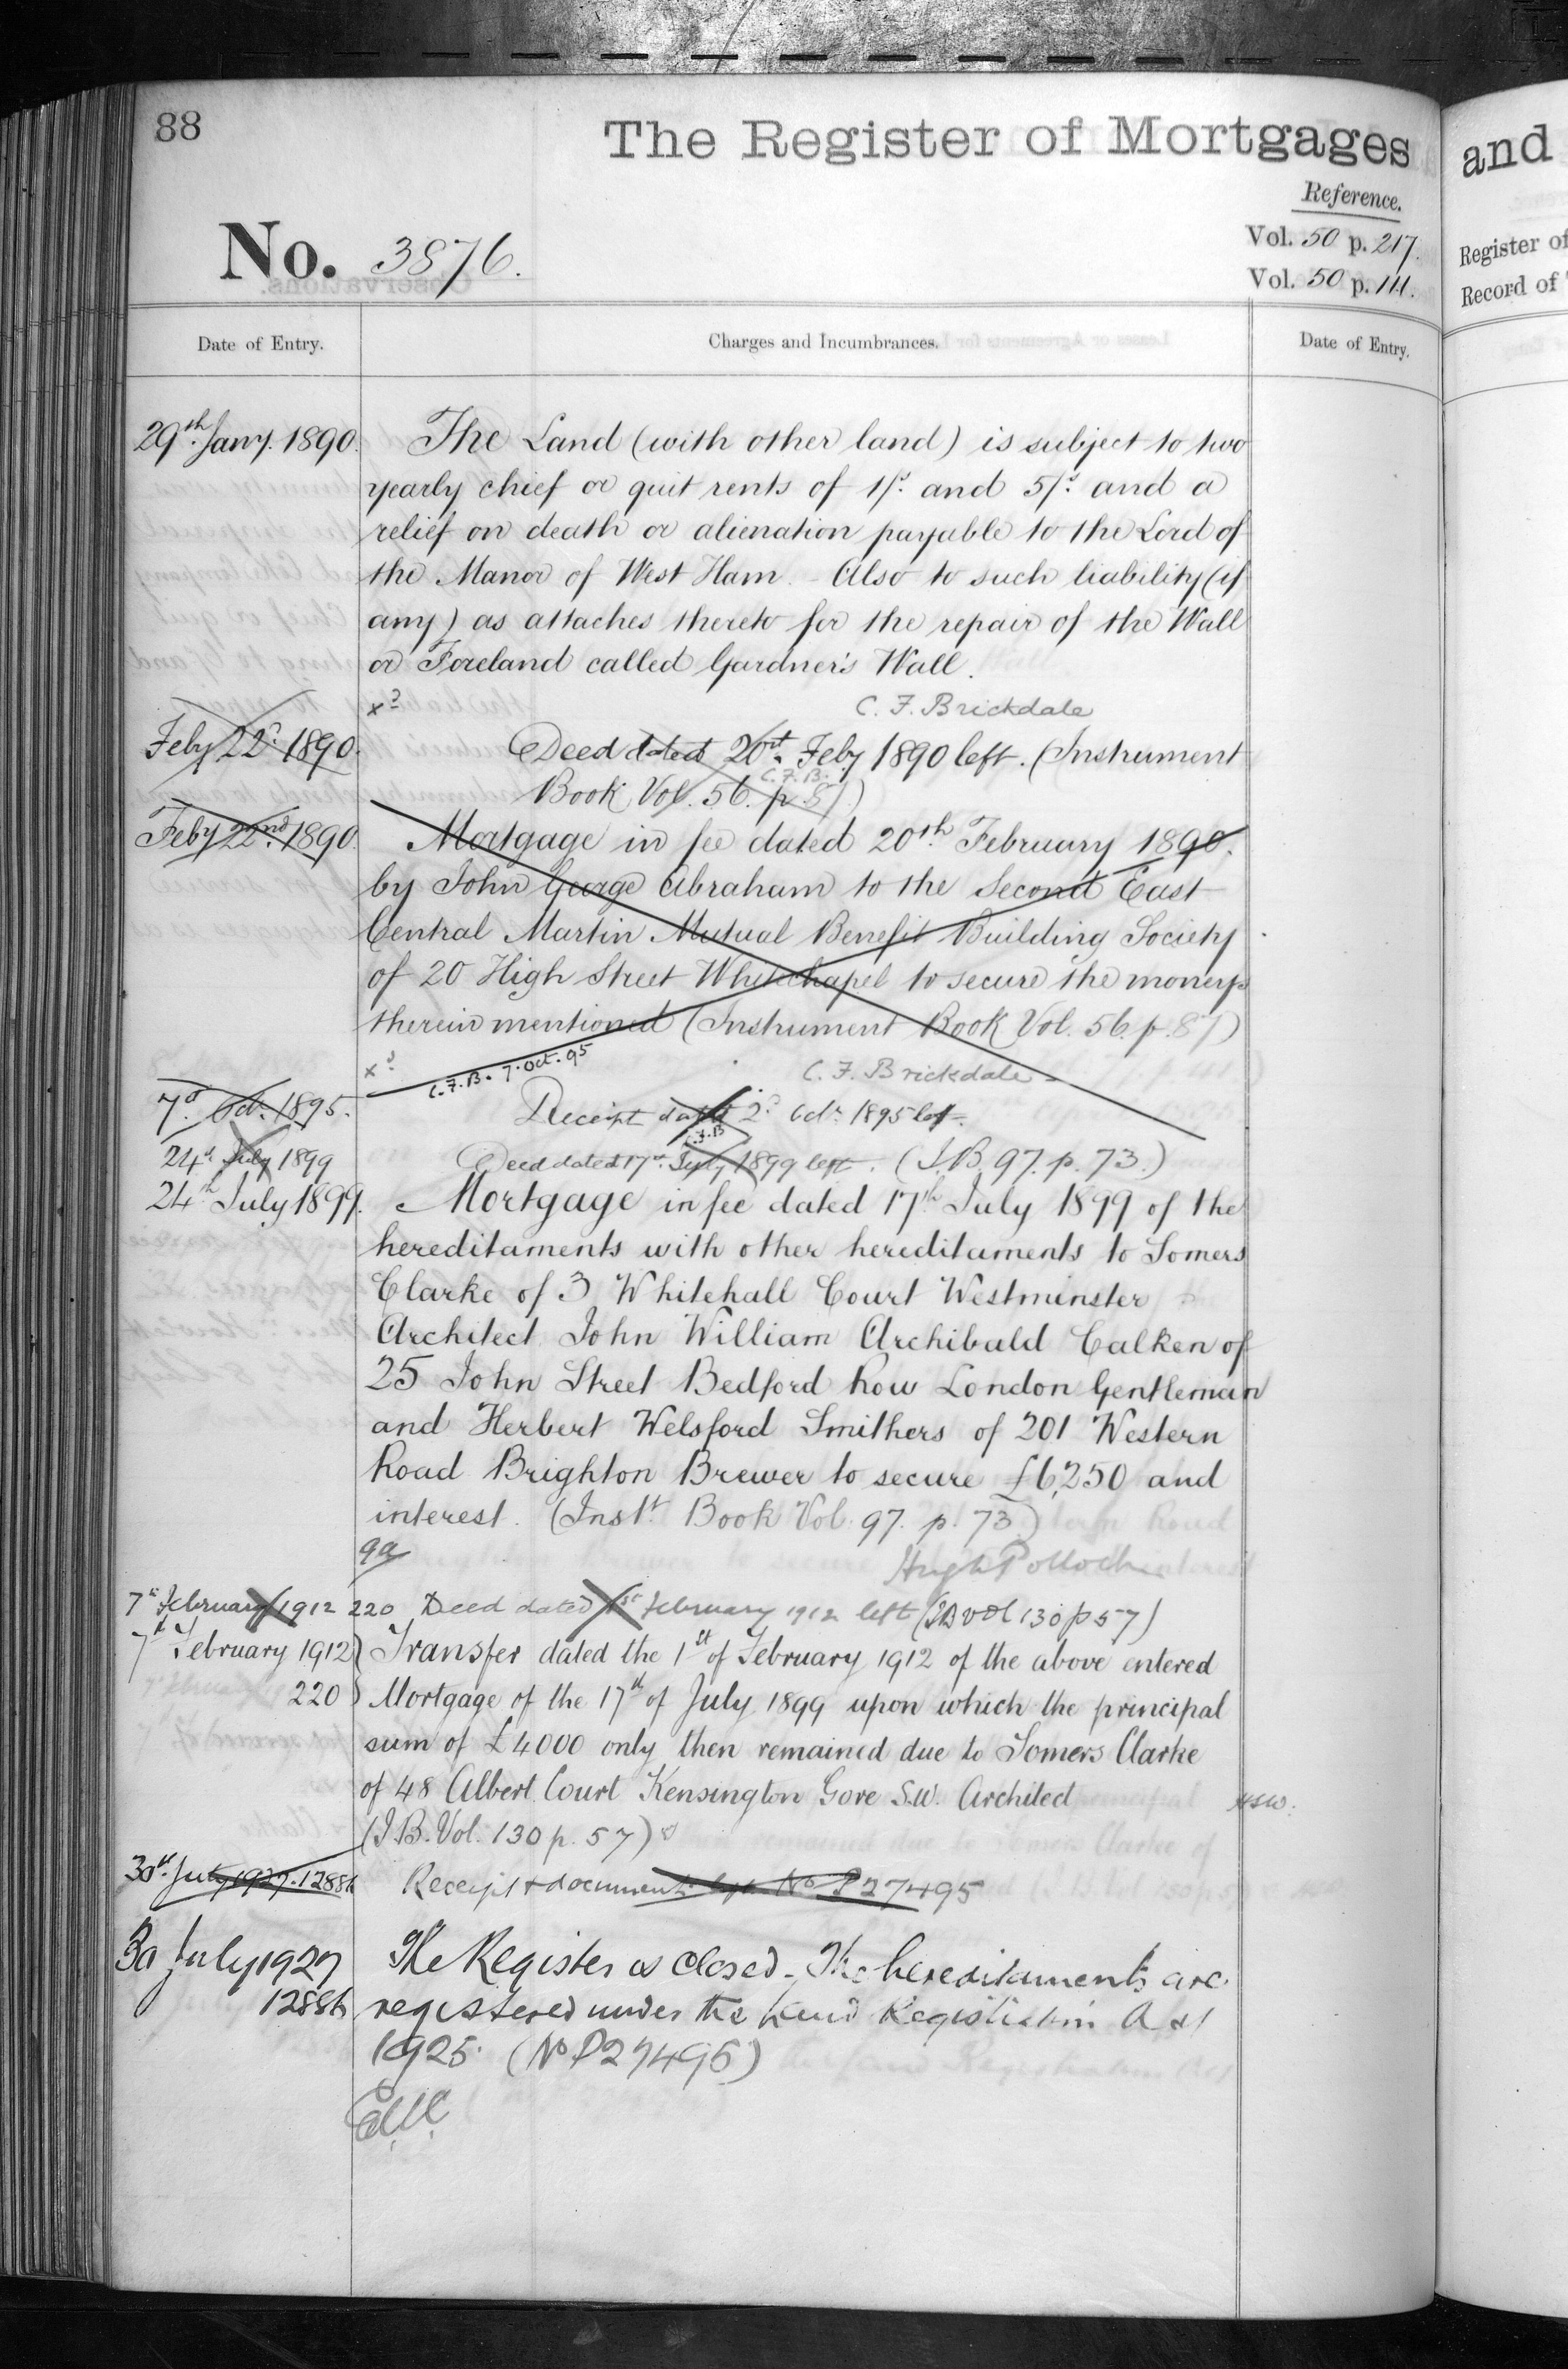 88
The Register of Mortgages
and
Reference.
No. 3876.
Vol. 50 p. 217.
Vol. 50 p. 141.
Register of
Record of
Date of Entry.
Charges and Incumbrances.
Date of Entry.
29th Jany. 1890. The Land (with other land) is subject to two
yearly chief or quit rents of 1/s. and 5/s. and a
relief on death or alienation payable to the Lord of
the Manor of West Ham. Also to such liability (if
any) as attaches thereto for the repair of the Wall
or Foreland called Gardner's Wall.
C. F. Brickdale
Feby 22d. 1890. Deed dated 20th. Feby 1890 left. (Instrument
C.F.B.
Book Vol. 56. p 87)
Feby 22nd. 1890. Mortgage in fee dated 20th. February 1890.
by John George Abraham to the Second East
Central Martin Mutual Benefit Building Society
of 20 High Street Whitechapel to secure the moneys
therein mentioned (Instrument Book Vol. 56. p. 87)
C.F.B. 7. Oct. 95
C. F. Brickdale
7th. Oct. 1895. Receipt dated 2d. Octr. 1895 left.
C.F.B
24th July 1899 Deed dated 17th. July 1899 left. (I.B. 97. p. 73.)
24th July 1899. Mortgage in fee dated 17th July 1899 of the
hereditaments with other hereditaments to Somers
Clarke of 3 Whitehall Court Westminster
Architect John William Archibald Calken of
25 John Street Bedford Row London Gentleman
and Herbert Welsford Smithers of 201 Western
Road Brighton Brewer to secure £6,250 and
interest. (Inst. Book Vol. 97. p. 73)
Hugh Pollock
7th February 1912 220 Deed dated 1st February 1912 left (IB vol 130 p 57)
7th February 1912) Transfer dated the 1st of February 1912 of the above entered
220) Mortgage of the 17th of July 1899 upon which the principal
sum of £4000 only then remained due to Somers Clarke
of 48 Albert Court Kensington Gore S.W. Architect
(I.B. Vol. 130 p. 57)
30th July 1927. 12886 Receipt & documents left No P27495
30 July 1927 The Register is closed. The hereditaments are
12886 registered under the Land Registration Act
1925. (No P27495)